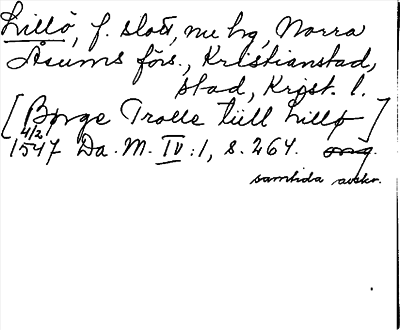 Lillö, f. slott, nu hg, Norra
Åsums förs., Kristianstads
stad, Krist. l.
[Børge Trolle tiill Lillø]
4/2
1547 Da. M. IV:1, s. 264. orig.
samtida avskr.